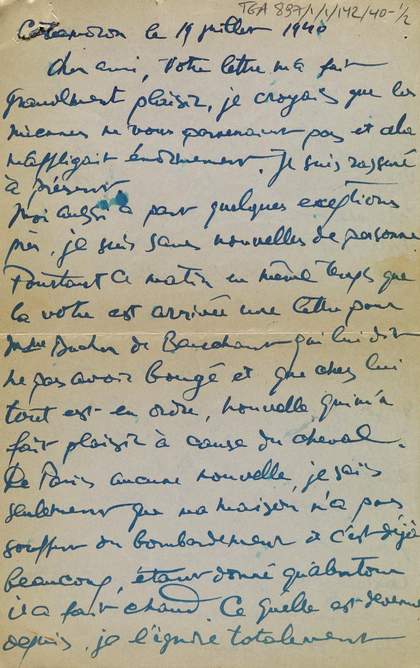 TGA 897/1/1/142/40-1/2
le 19 juillet 1940
Cher ami, Votre lettre m'a fait
grandement plaisir, je croyais que les
miennes ne vous parvenaient pas et cela
m'affligait énormément. Je suis rassuré
à présent
Moi aussi a part quelques exceptions
près, je suis sans nouvelles de personne
Pourtant ce matin en même temps que
la votre est arrivée une lettre pour
Mme de Bauchant qui lui dit
ne pas avoir bougé et que chez lui
tout est en ordre, nouvelle qui m'a
fait plaisir à cause du cheval.
De Paris aucune nouvelle, je sais
seulement que ma maison n'a pas
souffert du bombardement et c'est déjà
beaucoup, étant donné qu'alentour
il a fait chaud. Ce qu'elle est devenue
depuis, je l'ignore totalement